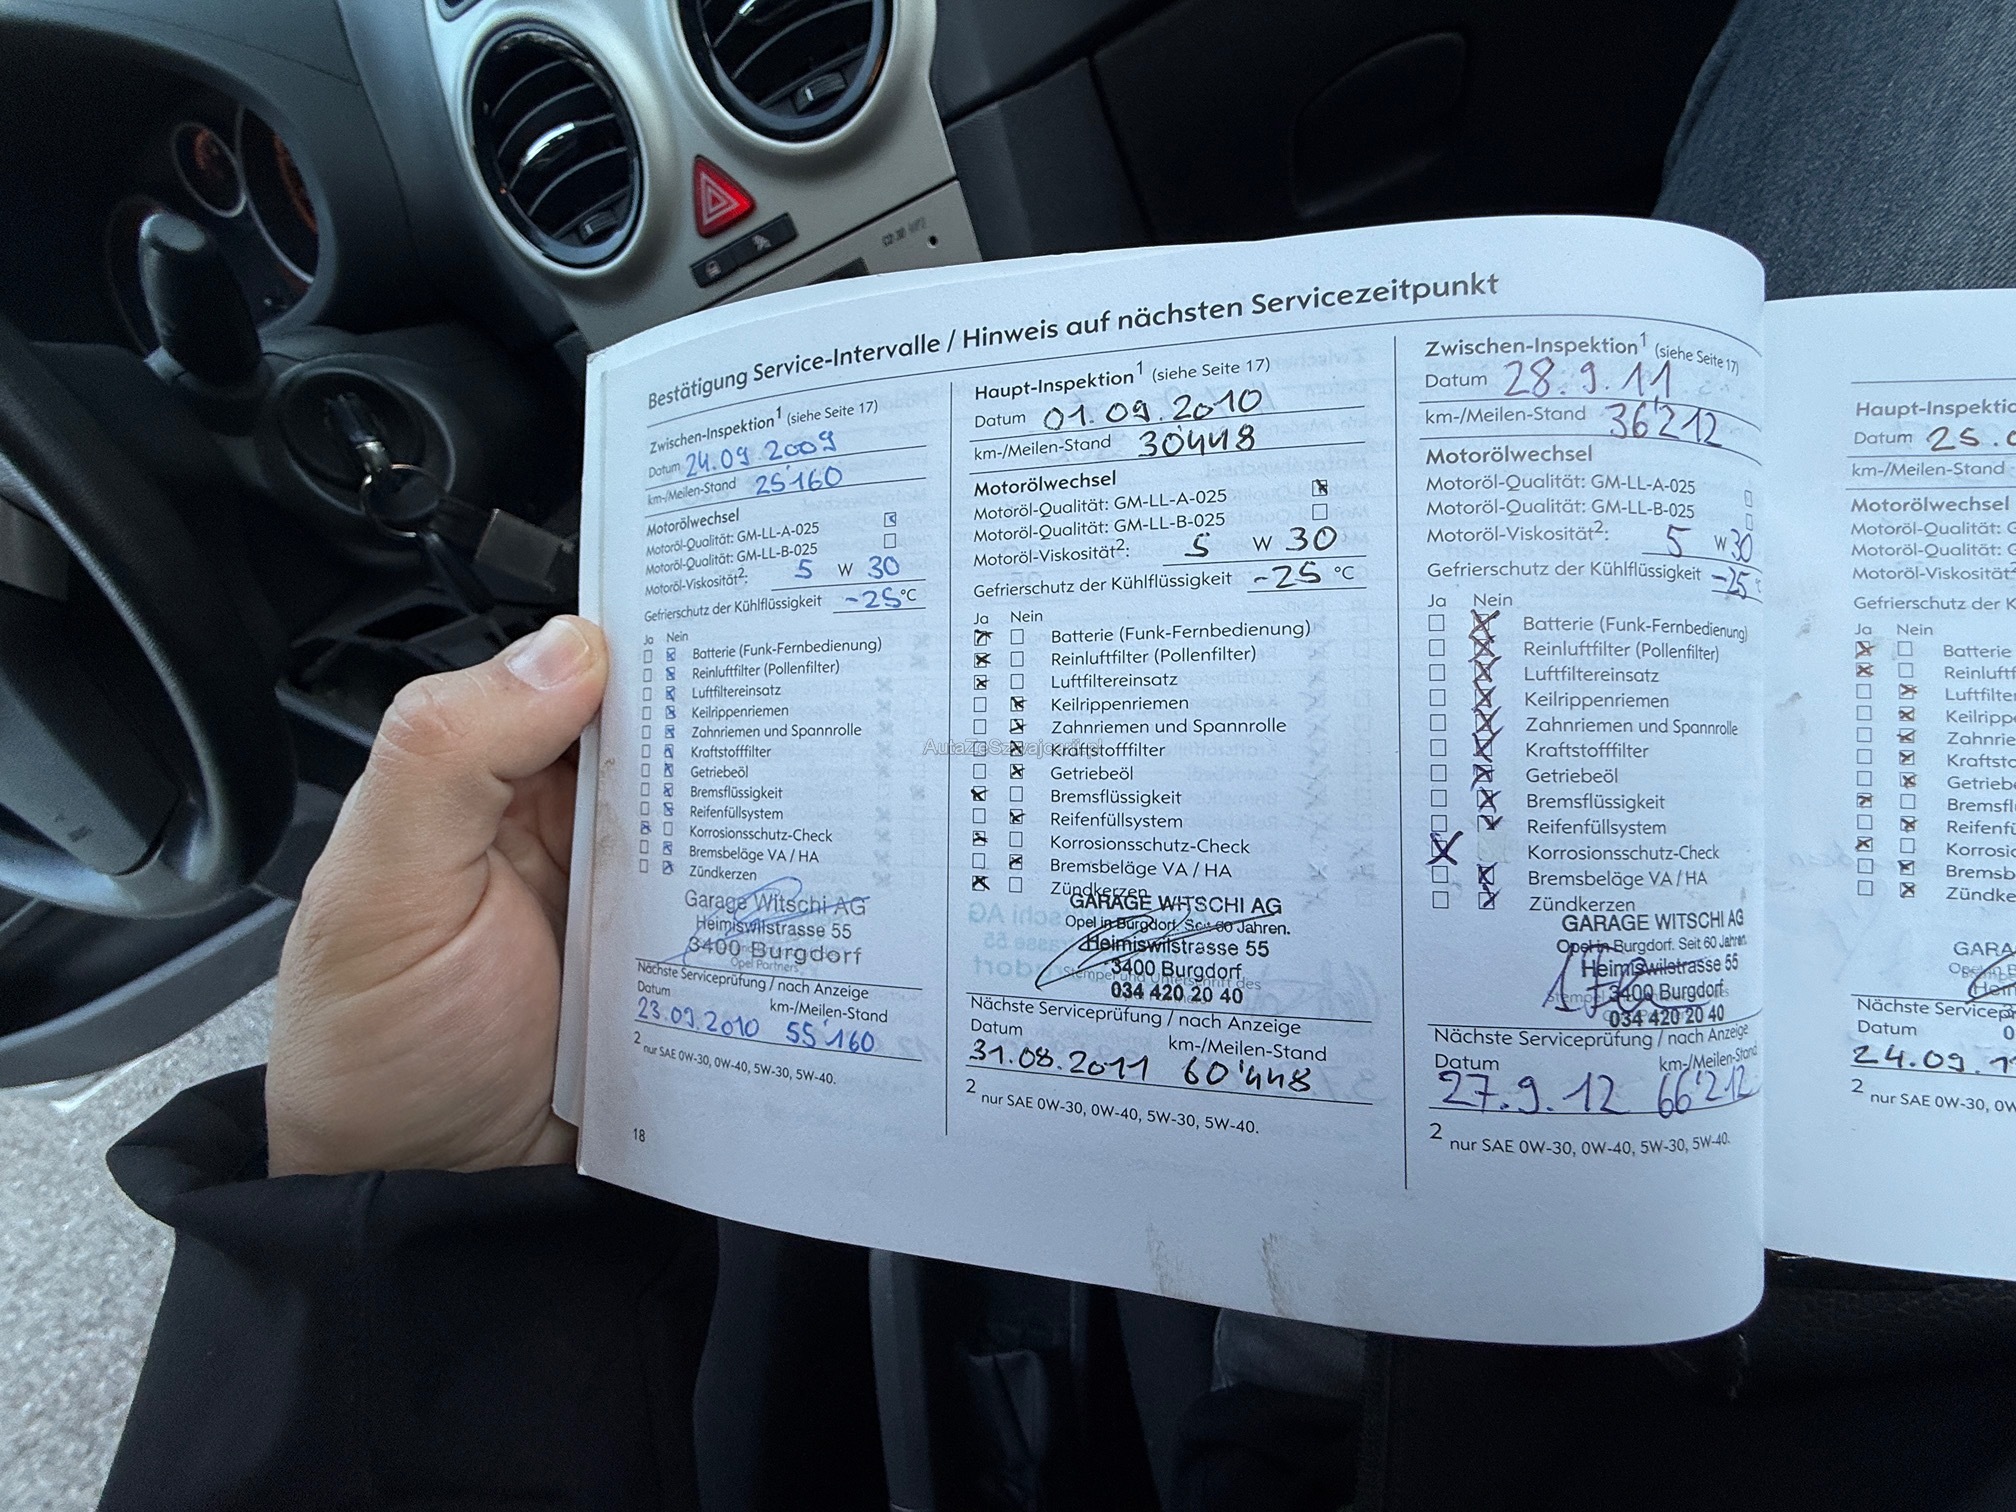 Bestätigung Service-Intervalle / Hinweis auf nächsten Servicezeitpunkt
Zwischen-Inspektion¹ (siehe Seite 17)
Datum 24.09.2009
km-/Meilen-Stand 25'160
Motorölwechsel
Motoröl-Qualität: GM-LL-A-025
Motoröl-Qualität: GM-LL-B-025
Motoröl-Viskosität²: 5 W 30
Gefrierschutz der Kühlflüssigkeit -25 °C
Ja Nein
Batterie (Funk-Fernbedienung)
Reinluftfilter (Pollenfilter)
Luftfiltereinsatz
Keilrippenriemen
Zahnriemen und Spannrolle
Kraftstofffilter
Getriebeöl
Bremsflüssigkeit
Reifenfüllsystem
Korrosionsschutz-Check
Bremsbeläge VA / HA
Zündkerzen
Garage Witschi AG
Heimiswilstrasse 55
3400 Burgdorf
Opel Partners
Nächste Serviceprüfung / nach Anzeige
Datum km-/Meilen-Stand
23.09.2010 55'160
2 nur SAE 0W-30, 0W-40, 5W-30, 5W-40.
18
Haupt-Inspektion¹ (siehe Seite 17)
Datum 01.09.2010
km-/Meilen-Stand 30'448
Motorölwechsel
Motoröl-Qualität: GM-LL-A-025
Motoröl-Qualität: GM-LL-B-025
Motoröl-Viskosität²: 5 W 30
Gefrierschutz der Kühlflüssigkeit -25 °C
Ja Nein
Batterie (Funk-Fernbedienung)
Reinluftfilter (Pollenfilter)
Luftfiltereinsatz
Keilrippenriemen
Zahnriemen und Spannrolle
Kraftstofffilter
Getriebeöl
Bremsflüssigkeit
Reifenfüllsystem
Korrosionsschutz-Check
Bremsbeläge VA / HA
Zündkerzen
GARAGE WITSCHI AG
Opel in Burgdorf. Seit 60 Jahren.
Heimiswilstrasse 55
3400 Burgdorf
Stempel und Unterschrift des
034 420 20 40
Nächste Serviceprüfung / nach Anzeige
Datum km-/Meilen-Stand
31.08.2011 60'448
2 nur SAE 0W-30, 0W-40, 5W-30, 5W-40.
Zwischen-Inspektion¹ (siehe Seite 17)
Datum 28.9.11
km-/Meilen-Stand 36'212
Motorölwechsel
Motoröl-Qualität: GM-LL-A-025
Motoröl-Qualität: GM-LL-B-025
Motoröl-Viskosität²: 5 W 30
Gefrierschutz der Kühlflüssigkeit -25
Ja Nein
Batterie (Funk-Fernbedienung)
Reinluftfilter (Pollenfilter)
Luftfiltereinsatz
Keilrippenriemen
Zahnriemen und Spannrolle
Kraftstofffilter
Getriebeöl
Bremsflüssigkeit
Reifenfüllsystem
Korrosionsschutz-Check
Bremsbeläge VA / HA
Zündkerzen
GARAGE WITSCHI AG
Opel in Burgdorf. Seit 60 Jahren.
Heimiswilstrasse 55
3400 Burgdorf
034 420 20 40
Nächste Serviceprüfung / nach Anzeige
Datum km-/Meilen-Stand
27.9.12 66'212
2 nur SAE 0W-30, 0W-40, 5W-30, 5W-40.
Haupt-Inspektio
Datum 25.
km-/Meilen-Stand
Motorölwechsel
Motoröl-Qualität: G
Motoröl-Qualität: G
Motoröl-Viskosität
Gefrierschutz der K
Ja Nein
Batterie
Reinluft
Luftfilter
Keilripp
Zahnrie
Kraftsto
Getriebe
Bremsfl
Reifenfü
Korrosio
Bremsb
Zündke
GARA
Nächste Servicep
Datum
24.09.
2 nur SAE 0W-30, 0W
AutaZeSzwajcarii.pl